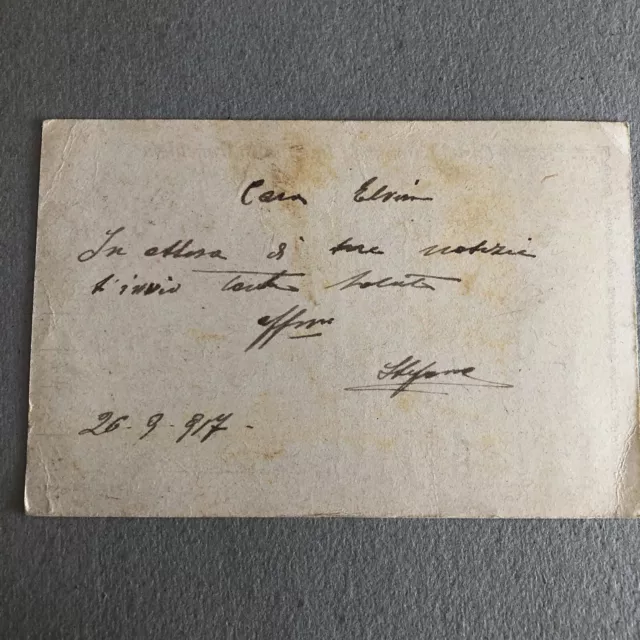 Cara Elvira
In attesa di tue notizie
t'invio tanti saluti
affmi
Stefano
26-9-917-